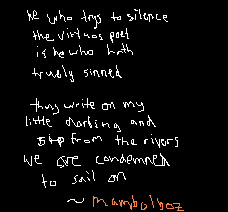 he who trys to silence
the virtuos poet
is he who hath
truely sinned
thus write on my
little darling and
sip from the rivers
we are condemned
to sail on
~ mambolboz